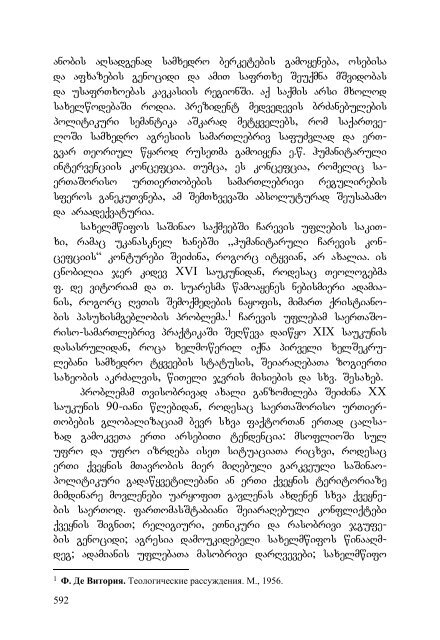 ანობის აღსადგენად სამხედრო ბერკეტების გამოყენება, ოსებისა
და აფხაზების გენოციდი და ამით საფრთხე შეუქმნა მშვიდობას
და უსაფრთხოებას კავკასიის რეგიონში. აქ საქმის არსი მხოლოდ
სახელწოდებაში როდია. პრეზიდენტ მედვედევის ბრძანებულების
პოლიტიკური სემანტიკა აშკარად მეტყველებს, რომ საქართვე-
ლოში სამხედრო აგრესიის სამართლებრივ საფუძვლად და ერთ-
გვარ თეორიულ წყაროდ რუსეთმა გამოიყენა ე.წ. ჰუმანიტარული
ინტერვენციის კონცეფცია. თუმცა, ეს კონცეფცია, რომელიც სა-
ერთაშორისო ურთიერთობების სამართლებრივი რეგულირების
სფეროს განეკუთვნება, ამ შემთხვევაში აბსოლუტურად შეუსაბამო
და არაადექვატურია.
სახელმწიფოს საშინაო საქმეებში ჩარევის უფლების საკით-
ხი, რამაც უკანასკნელ ხანებში „ჰუმანიტარული ჩარევის კონ-
ცეფციის“ კონტურები შეიძინა, როგორც იტყვიან, არ ახალია. ის
ცნობილია ჯერ კიდევ XVI საუკუნიდან, როდესაც თეოლოგებმა
ფ. დე ვიტორიამ და თ. სუარესმა წამოაყენეს ნებისმიერი ადამია-
ნის, როგორც ღვთის შემოქმედების ნაყოფის, მიმართ ქრისტიანო-
ბის პასუხისმგებლობის პრობლემა.¹ ჩარევის უფლებამ საერთაშო-
რისო-სამართლებრივ პრაქტიკაში შეღწევა დაიწყო XIX საუკუნის
დასასრულიდან, როცა ხელმოწერილ იქნა პირველი ხელშეკრუ-
ლებანი სამხედრო ტყვეების სტატუსის, შეიარაღებათა ზოგიერთი
სახეობის აკრძალვის, წითელი ჯვრის მისიების და სხვ. შესახებ.
პრობლემამ თვისობრივად ახალი განზომილება შეიძინა XX
საუკუნის 90-იანი წლებიდან, როდესაც საერთაშორისო ურთიერ-
თობების გლობალიზაციამ ბევრ სხვა ფაქტორთან ერთად ცალსა-
ხად გამოკვეთა ერთი არსებითი ტენდენცია: მსოფლიოში სულ
უფრო და უფრო იზრდება ისეთ სიტუაციათა რიცხვი, როდესაც
ერთი ქვეყნის მთავრობის მიერ მიღებული გარკვეული საშინაო-
პოლიტიკური გადაწყვეტილებანი ან ერთი ქვეყნის ტერიტორიაზე
მიმდინარე მოვლენები უარყოფით გავლენას ახდენენ სხვა ქვეყნე-
ბის საერთოდ. ფართომასშტაბიანი შეიარაღებული კონფლიქტები
ქვეყნის შიგნით; რელიგიური, ეთნიკური და რასობრივი ჯგუფე-
ბის გენოციდი; აგრესია დამოუკიდებელი სახელმწიფოს წინააღმ-
დეგ; ადამიანის უფლებათა მასობრივი დარღვევები; სახელმწიფო
¹ Ф. Де Витория. Теологические рассуждения. М., 1956.
592